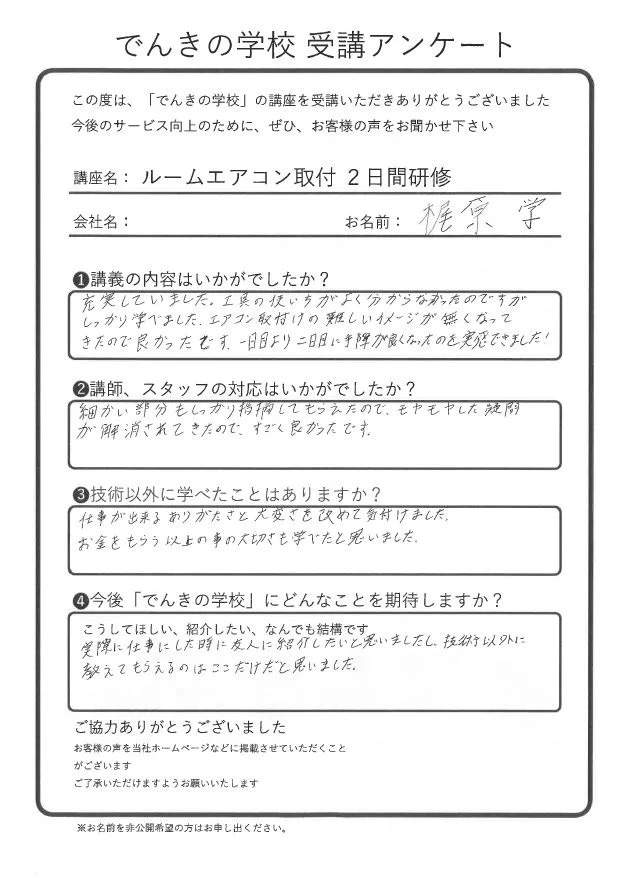 でんきの学校 受講アンケート
この度は、「でんきの学校」の講座を受講いただきありがとうございました
今後のサービス向上のために、ぜひ、お客様の声をお聞かせ下さい
講座名： ルームエアコン取付 ２日間研修
会社名： お名前： 梶原 学
❶講義の内容はいかがでしたか？
充実していました。工具の使い方がよく分からなかったのですが
しっかり学べました。エアコン取付けの難しいイメージが無くなって
きたので良かったです。一日目より二日目に手際が良くなったのを実感できました!
❷講師、スタッフの対応はいかがでしたか？
細かい部分もしっかり指摘してもらえたので、モヤモヤした疑問
が解消されてきたので、すごく良かったです。
❸技術以外に学べたことはありますか？
仕事が出来るありがたさと大変さを改めて気付けました。
お金をもらう以上の事の大切さも学べたと思いました。
❹今後「でんきの学校」にどんなことを期待しますか？
こうしてほしい、紹介したい、なんでも結構です
実際に仕事にした時に友人に紹介したいと思いましたし、技術以外に
教えてもらえるのはここだけだと思いました。
ご協力ありがとうございました
お客様の声を当社ホームページなどに掲載させていただくこと
がございます
ご了承いただけますようお願いいたします
※お名前を非公開希望の方はお申し出ください。